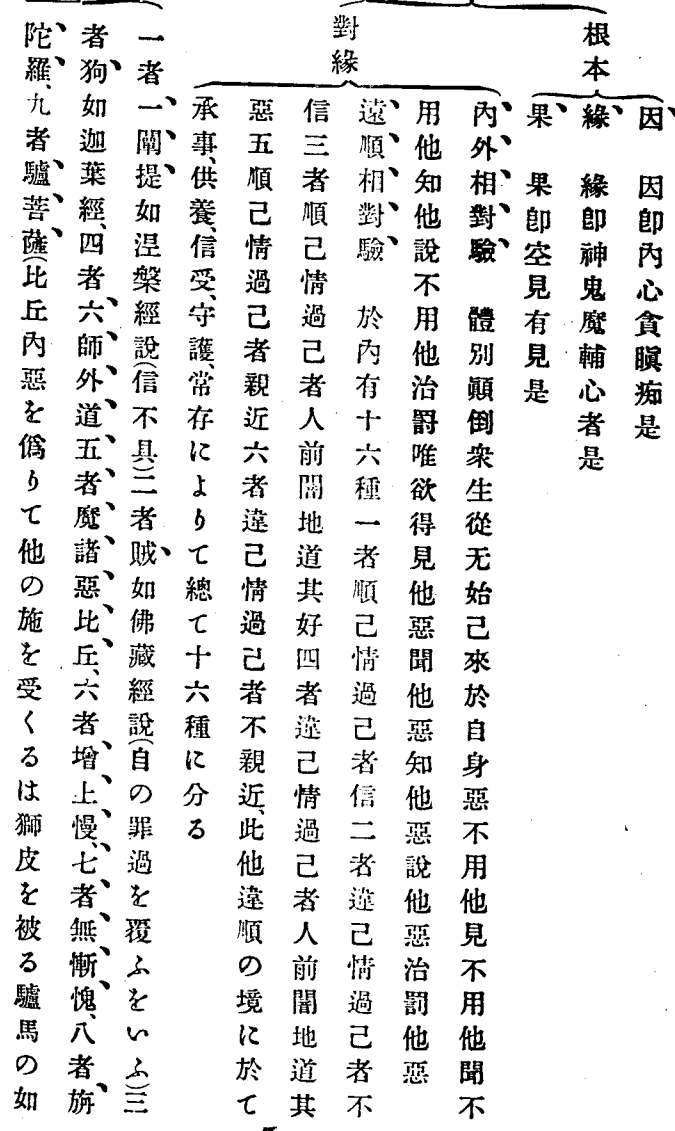 根本
因　因卽內心貪瞋痴是
緣　緣卽神鬼魔輔心者是
果　果卽空見有見是
對緣
內外相對驗　體別顚倒衆生從无始己來於自身惡不用他見不用他聞不
用他知他說不用他治罰唯欲得見他惡聞他惡知他惡說他惡治罰他惡
遠順相對驗　於內有十六種一者順己情過己者信二者違己情過己者不
信三者順己情過己者人前闇地道其好四者違己情過己者人前闇地道其
惡五順己情過己者親近六者違己情過己者不親近、此他違順の境に於て
承事、供養、信受、守護、常存によりて總て十六種に分る
一者一闡提如涅槃經說(信不具)二者賊如佛藏經說(自の罪過を覆ふをいふ)三
者狗如迦葉經、四者六師外道五者魔諸惡比丘、六者增上慢、七者無慚愧、八者旃
陀羅、九者驢菩薩(比丘內惡を僞りて他の施を受くるは獅皮を被る驢馬の如